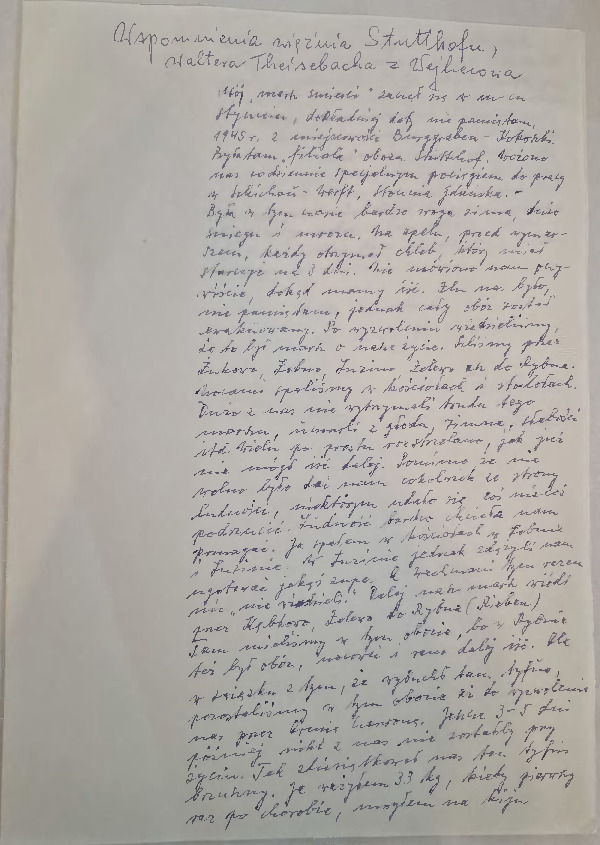 Wspomnienia więźnia Stutthofu,
Waltera Theisebacha z Wejherowa
Mój „marsz śmierci" zaczął się w m-cu
styczniu, dokładniej daty nie pamiętam,
1945 r. z miejscowości Burggraben - Kokoszki.
Była tam „filia" obozu Stutthof. Wożono
nas codziennie specjalnym pociągiem do pracy
w Schichau-Werft, Stocznia Gdańska. -
Była w tym czasie bardzo sroga zima, dużo
śniegu i mrozu. Na apelu, przed wymar-
szem, każdy otrzymał chleb, który miał
starczyć na 3 dni. Nie mówiono nam oczy-
wiście, dokąd mamy iść. Ilu nas było,
nie pamiętam, jednak cały obóz został
ewakuowany. Po wyzwoleniu wiedzieliśmy,
że to był marsz o nasze życie. Szliśmy przez
Żukowo, Luzino, Zelewo aż do Rybna.
Nocami spaliśmy w kościołach i stodołach.
Dużo z nas nie wytrzymali trudu tego
marszu, umarli z głodu, zimna, słabości
itd. Wielu po prostu rozstrzelano, jak już
nie mogli iść dalej. Pomimo że nie
wolno było dać nam cokolwiek ze strony
ludności, niektórym udało się coś
podrzucić. Ludność bardzo chciała nam
pomagać. Ja spałem w kościołach w
i Luzinie. W Luzinie jednak zdążyli nam
ugotować jakąś zupę. A wachmani tym razem
nic „nie widzieli." Dalej nasz marsz wiódł
przez Kębłowo, Zelewo do Rybna (Rieben)
Tam mieliśmy w tym obozie, bo w Rybnie
też był obóz, nocować i rano dalej iść. Ale
w związku z tym, że wybuchł tam tyfus,
pozostaliśmy w tym obozie aż do wyzwolenia
nas przez Armię Czerwoną. Jeszcze 3-5 dni
później nikt z nas nie zostałby przy
życiu. Tak zdziesiątkował nas ten tyfus
brzuszny. Ja ważyłem 33 kg, kiedy pierwszy
raz po chorobie, mogłem na kiju